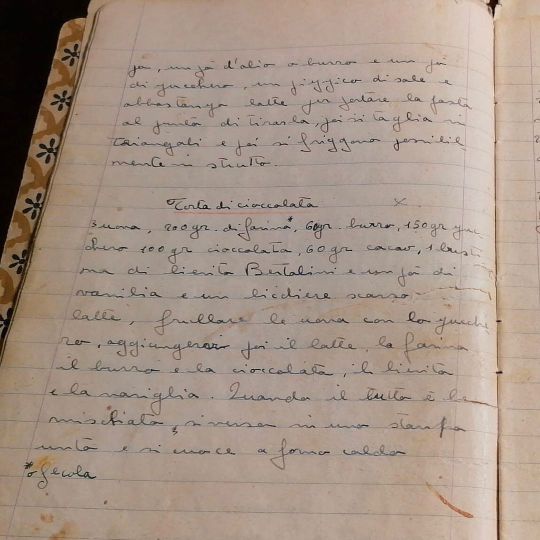 po', un pò d'olio o burro e un pò
di zucchero, un pizzico di sale e
abbastanza latte per portare la pasta
al punto di tirarla, poi si taglia in
triangoli e poi si friggono possibil
mente in strutto.
Torta di cioccolata x
3 uova, 200 gr. di farina*, 60 gr. burro, 150 gr zuc
chero 100 gr cioccolata, 60 gr cacao, 1 busti
na di lievito Bertolini e un pò di
vaniglia e un bicchiere scarso
latte, frullare le uova con lo zucche
ro, aggiungere poi il latte, la farina
il burro e la cioccolata, il lievito
e la vaniglia. Quando il tutto è be
mischiato, si versa in uno stampo
unto e si cuoce a forno caldo
*o fecola